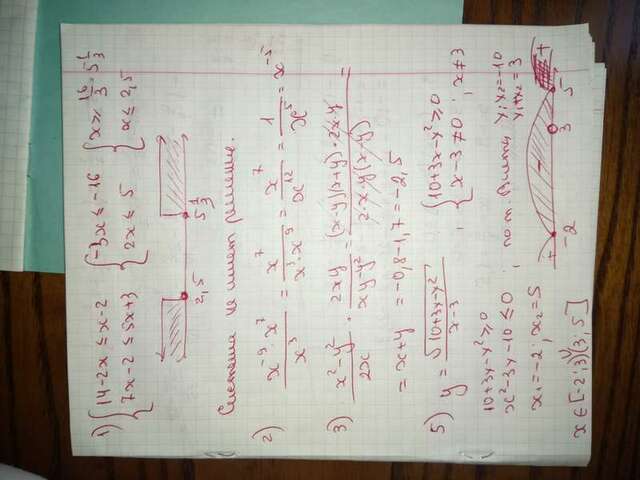 1) { 14-2x ≤ x-2 { -3x ≤ -16 { x ≥ 16/3 = 5 1/3
{ 7x-2 ≤ 5x+3 { 2x ≤ 5 { x ≤ 2,5
2,5 5 1/3
Система не имеет решение.
2) x⁻⁹·x⁷/x³ = x⁷/x³·x⁹ = x⁷/x¹² = 1/x⁵ = x⁻⁵
3) x²-y²/2x · 2xy/xy-y² = (x-y)(x+y)·2x·y/2·x·y(x-y) =
= x+y = -0,8-1,7 = -2,5
5) y = √10+3x-x²/x-3 ; { 10+3x-x² ≥ 0
{ x-3 ≠ 0 ; x ≠ 3
10+3x-x² ≥ 0
x²-3x-10 ≤ 0 ; по т. Виета x₁x₂=-10
x₁+x₂=3
x₁=-2 ; x₂=5
+ - +
-2 3 5
x ∈ [-2;3)∪(3;5]